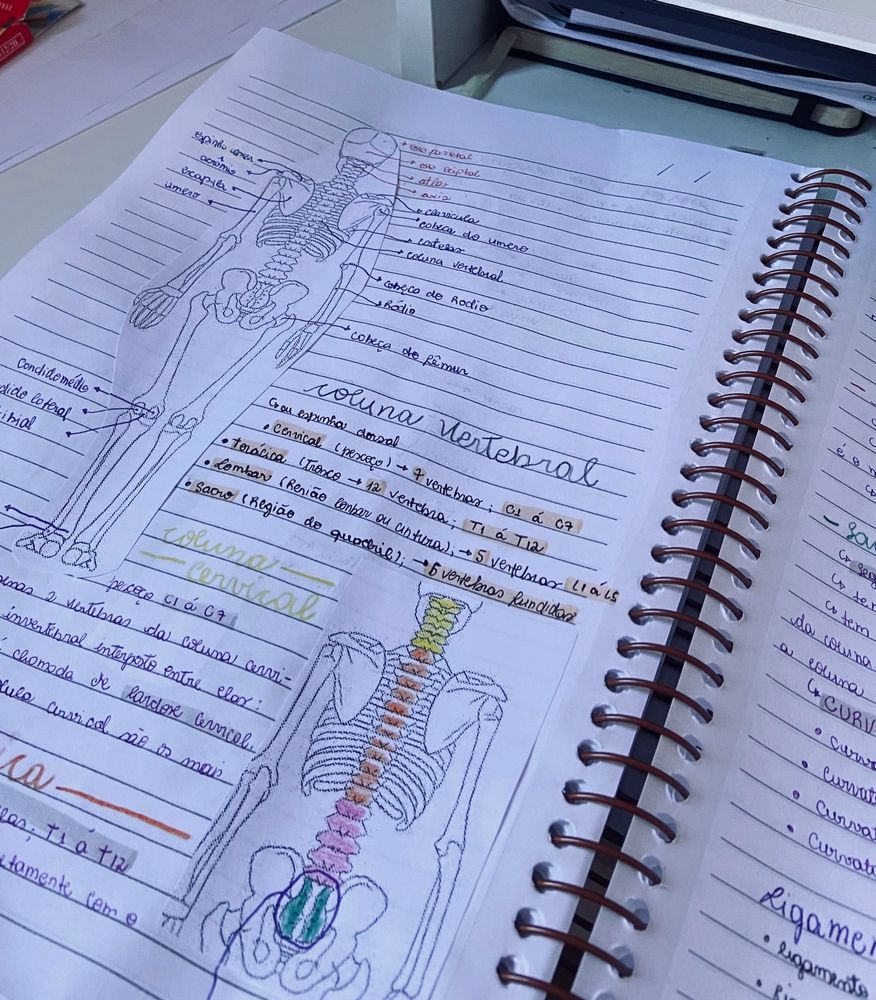 espinha
acromio
escapula
umero
osso parietal
osso ociptal
atlas
axis
clavicula
cabeça do umero
costelas
coluna vertebral
cabeça do Radio
Rádio
cabeça do fêmur
Condilo médio
dido lateral
tibial
coluna vertebral
ou espinha dorsal
• cervical (pescoço) → 7 vertebras; C1 á C7
• torácica (Tronco → 12 vertebra; T1 á T12
• Lombar (Renião lombar ou cintura); → 5 vertebras L1 á L5
• Sacro (Região do quadril); → 5 vertebras fundidas
coluna
cervical
pescoço C1 á C7
2 vertebras da coluna cervi-
invertebral interposto entre elas:
chamada de lardose cervical.
cervical são os mais
ica
T1 á T12
tamente com o
é o
tem
da coluna
a coluna
CURV
• Curva
• Curvat
• Curvat
• Curvat
Ligamen
• ligamento